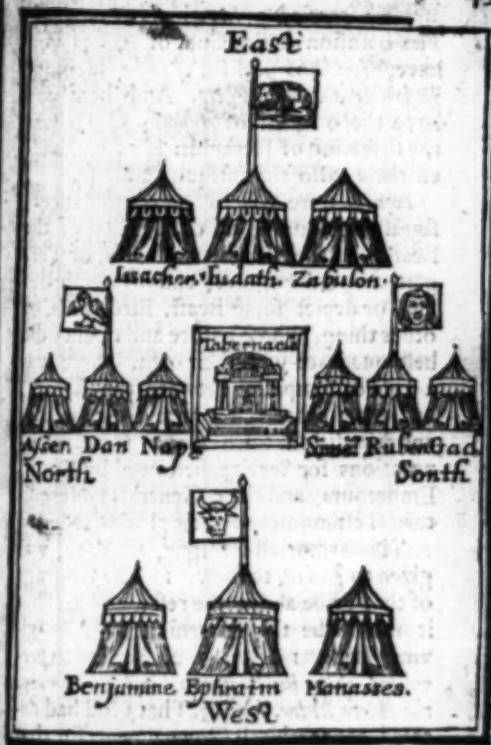 East
Issacher Iudath Zabulon
Tabernacle
Asser Dan Nap Ruben Gad
North South
Benjamine Ephraim Manasses.
West